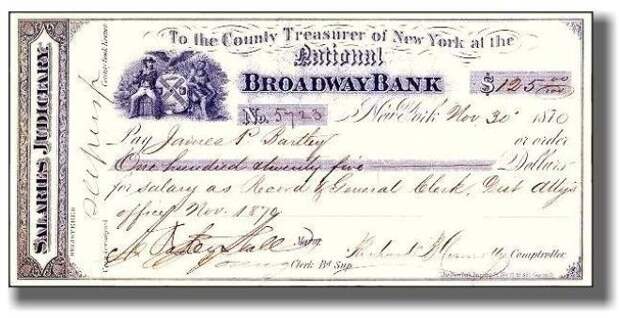 SALARIES JUDICIARY.
REGISTERED
Countersigned
To the County Treasurer of New York at the
National
BROADWAY BANK
$125 00/100
No. 5723
New York Nov 30 1870
Pay James P. Bartley or order
One hundred & twenty five Dollars
for salary as Record & General Clerk, Dist Atty's
office Nov. 1870
Hall Mayor
Richard B Connolly Comptroller
Clerk Bd Sup.